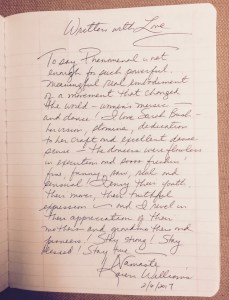 Written with Love
To say Phenomenal is not
enough for such powerful
meaningful real embodiment
of a movement that changed
the world - women's
and dance! I love Sarah Bush -
her vision, stamina, dedication
to her craft and excellent dance
sense - the dancers were flawless
in execution and
free, real and
sensual I envy their youth
their moves, their faithful
expression - and I revel in
their appreciation of their
mothers and grandmothers and
pioneers! Stay Strong! Stay
blessed! Stay true!
Namaste
Karen Williams
2/9/2017